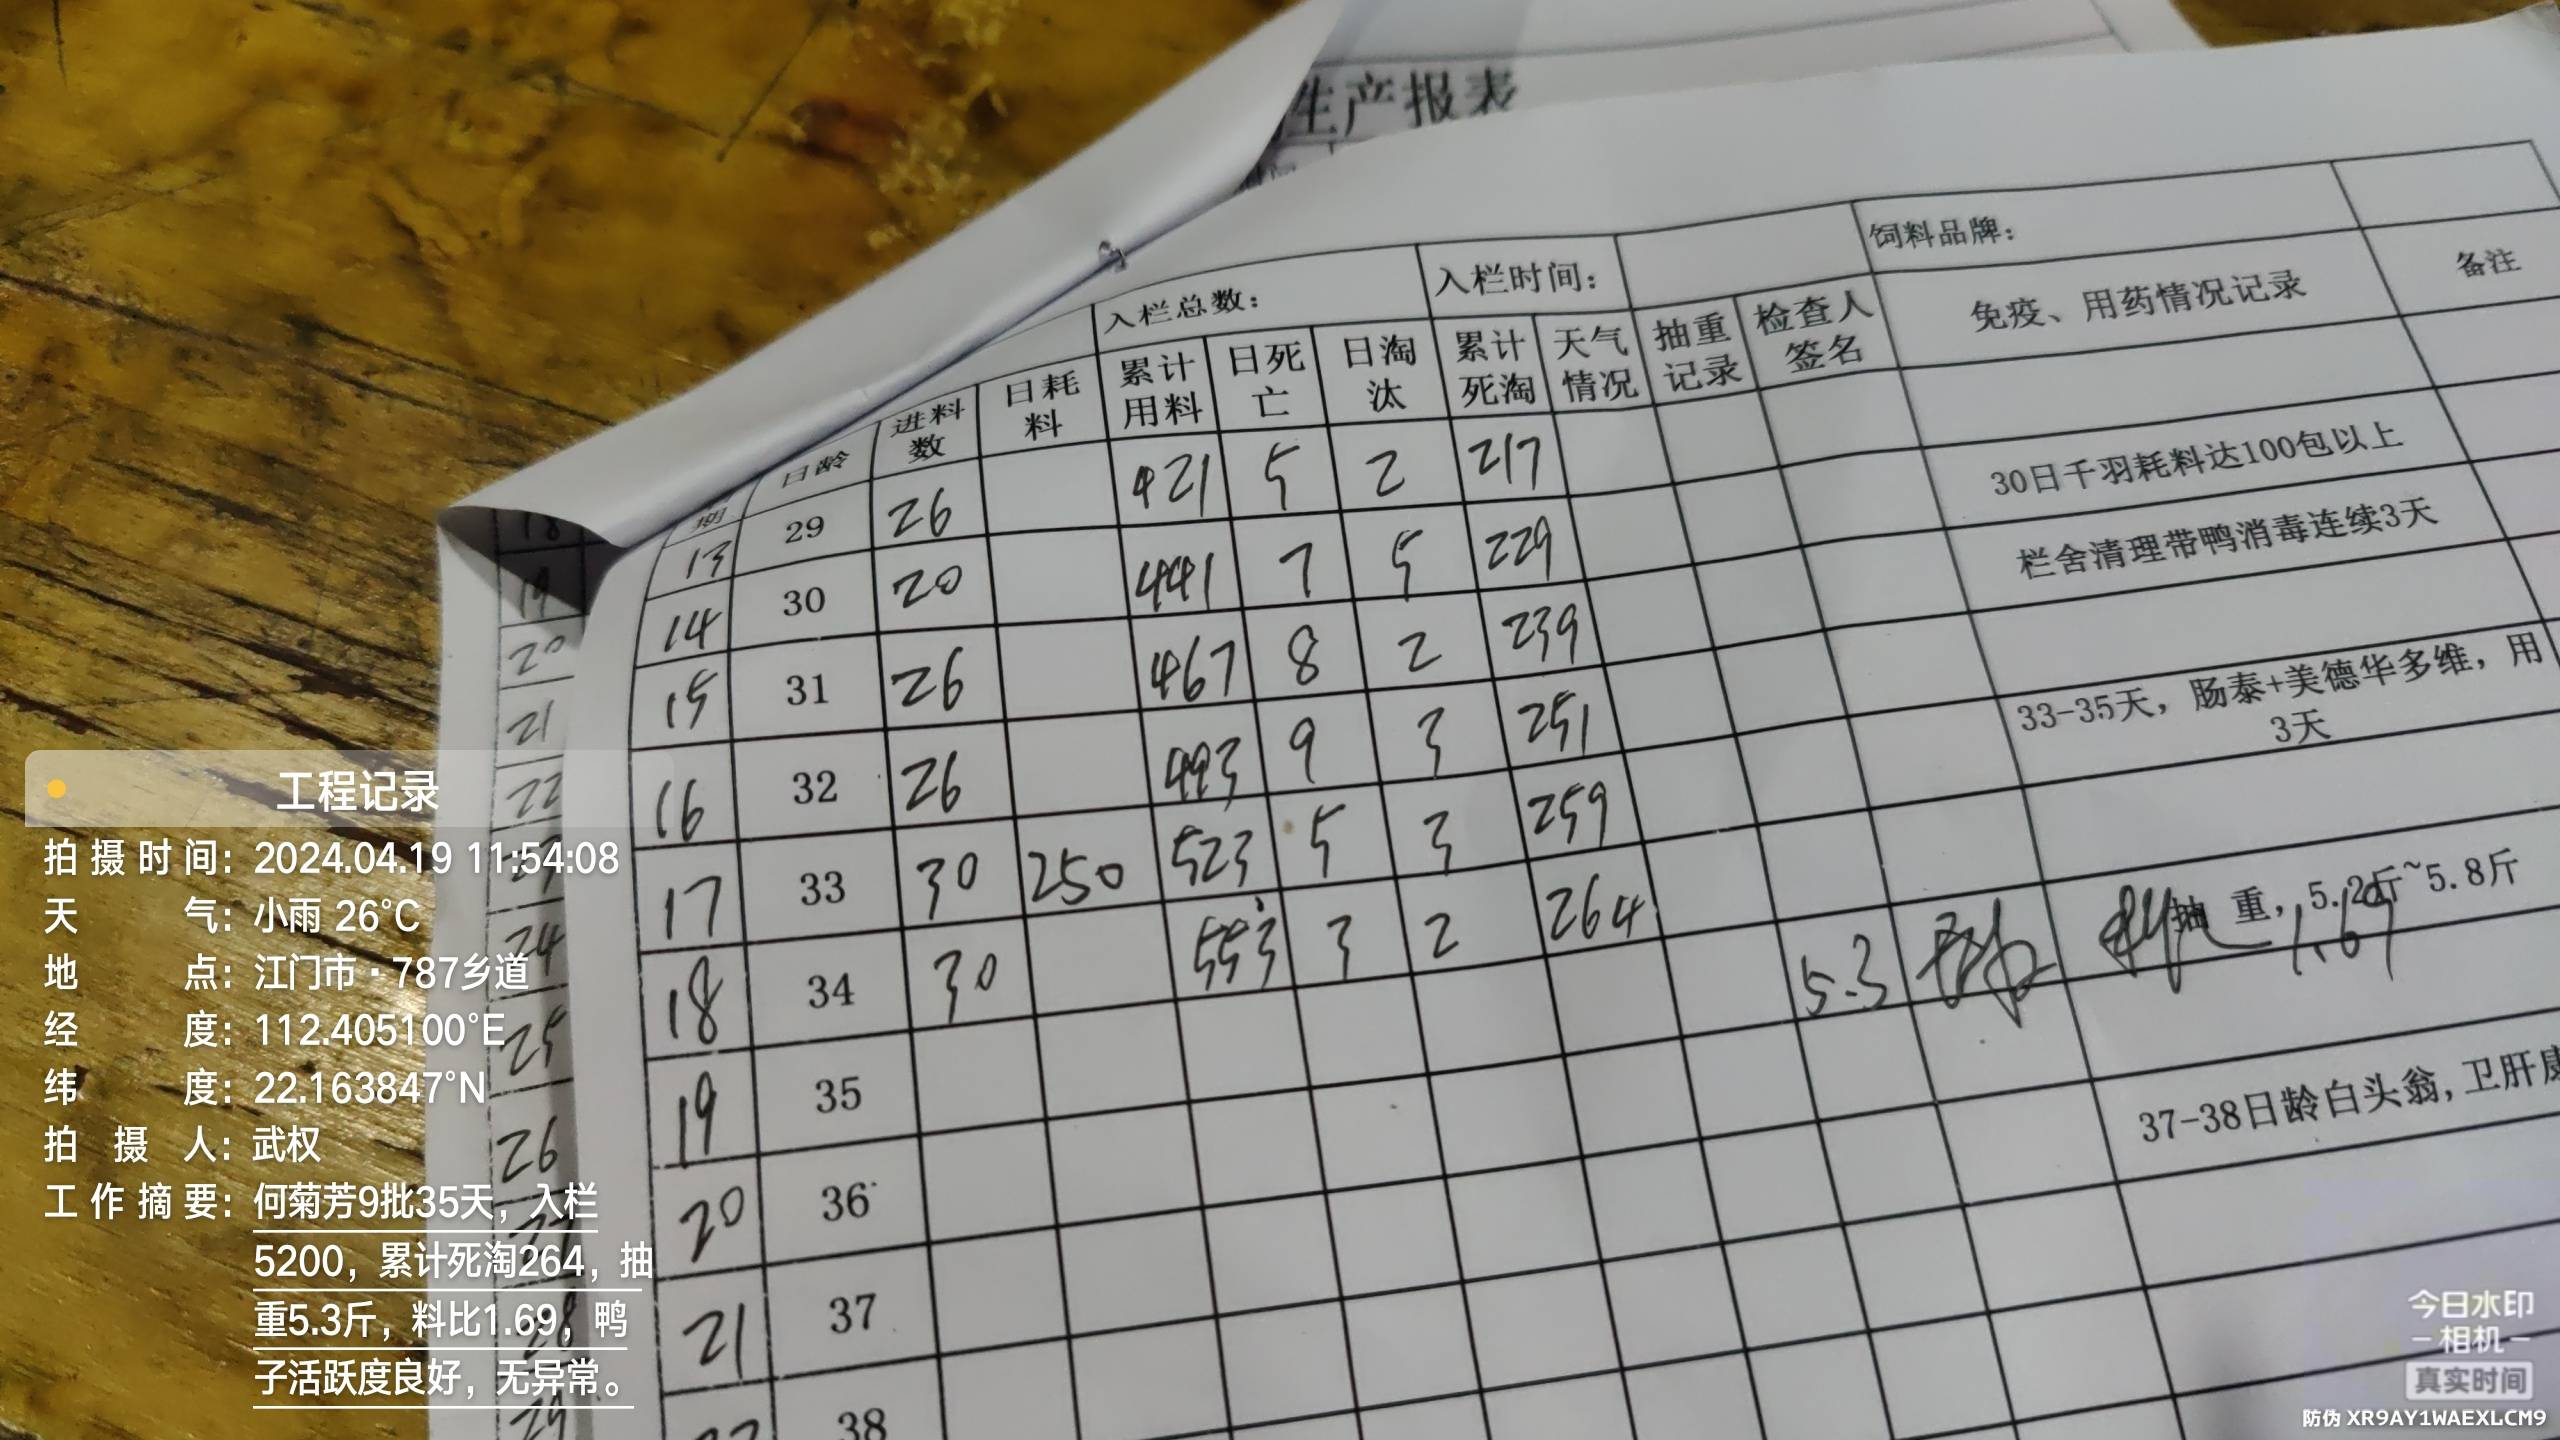 生产报表
入栏总数： 入栏时间： 饲料品牌：
日龄 进料数 日耗料 累计用料 日死亡 日淘汰 累计死淘 天气情况 抽重记录 检查人签名 免疫、用药情况记录 备注
13 29 26 421 5 2 217
30日千羽耗料达100包以上
14 30 20 441 7 5 229
栏舍清理带鸭消毒连续3天
15 31 26 467 8 2 239
16 32 26 493 9 3 251
33-35天，肠泰+美德华多维，用
3天
17 33 30 250 523 5 3 259
18 34 30 553 3 2 264
抽 重，5.2斤~5.8斤
5.3 1.69
19 35
37-38日龄白头翁,卫肝康
20 36
21 37
38
18
19
20
21
22
24
25
26
28
29
工程记录
拍摄时间：2024.04.19 11:54:08
天气：小雨 26°C
地点：江门市·787乡道
经度：112.405100°E
纬度：22.163847°N
拍摄人：武权
工作摘要：何菊芳9批35天，入栏
5200，累计死淘264，抽
重5.3斤，料比1.69，鸭
子活跃度良好，无异常。
今日水印
相机
真实时间
防伪 XR9AY1WAEXLCM9